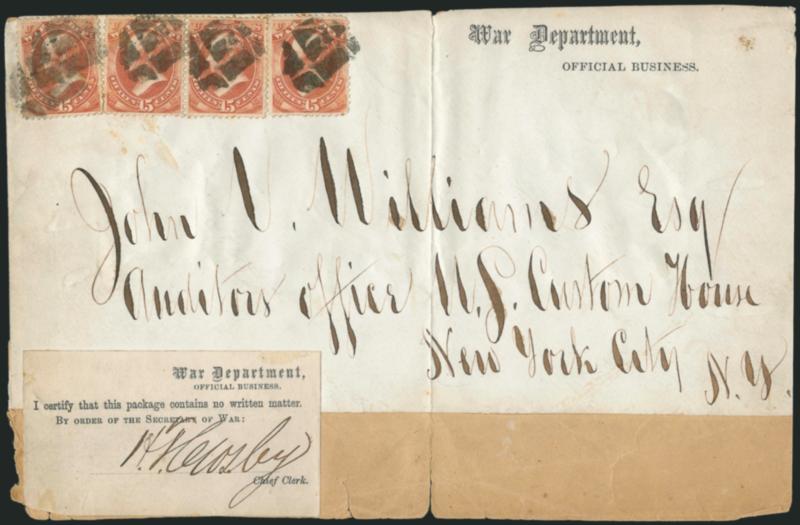 War Department,
OFFICIAL BUSINESS.
15 15 15 15
John V. Williams Esq
Auditors office U.S. Custom House
New York City
N.Y.
War Department,
OFFICIAL BUSINESS.
I certify that this package contains no written matter.
BY ORDER OF THE SECRETARY OF WAR:
H. T. Crosby
Chief Clerk.